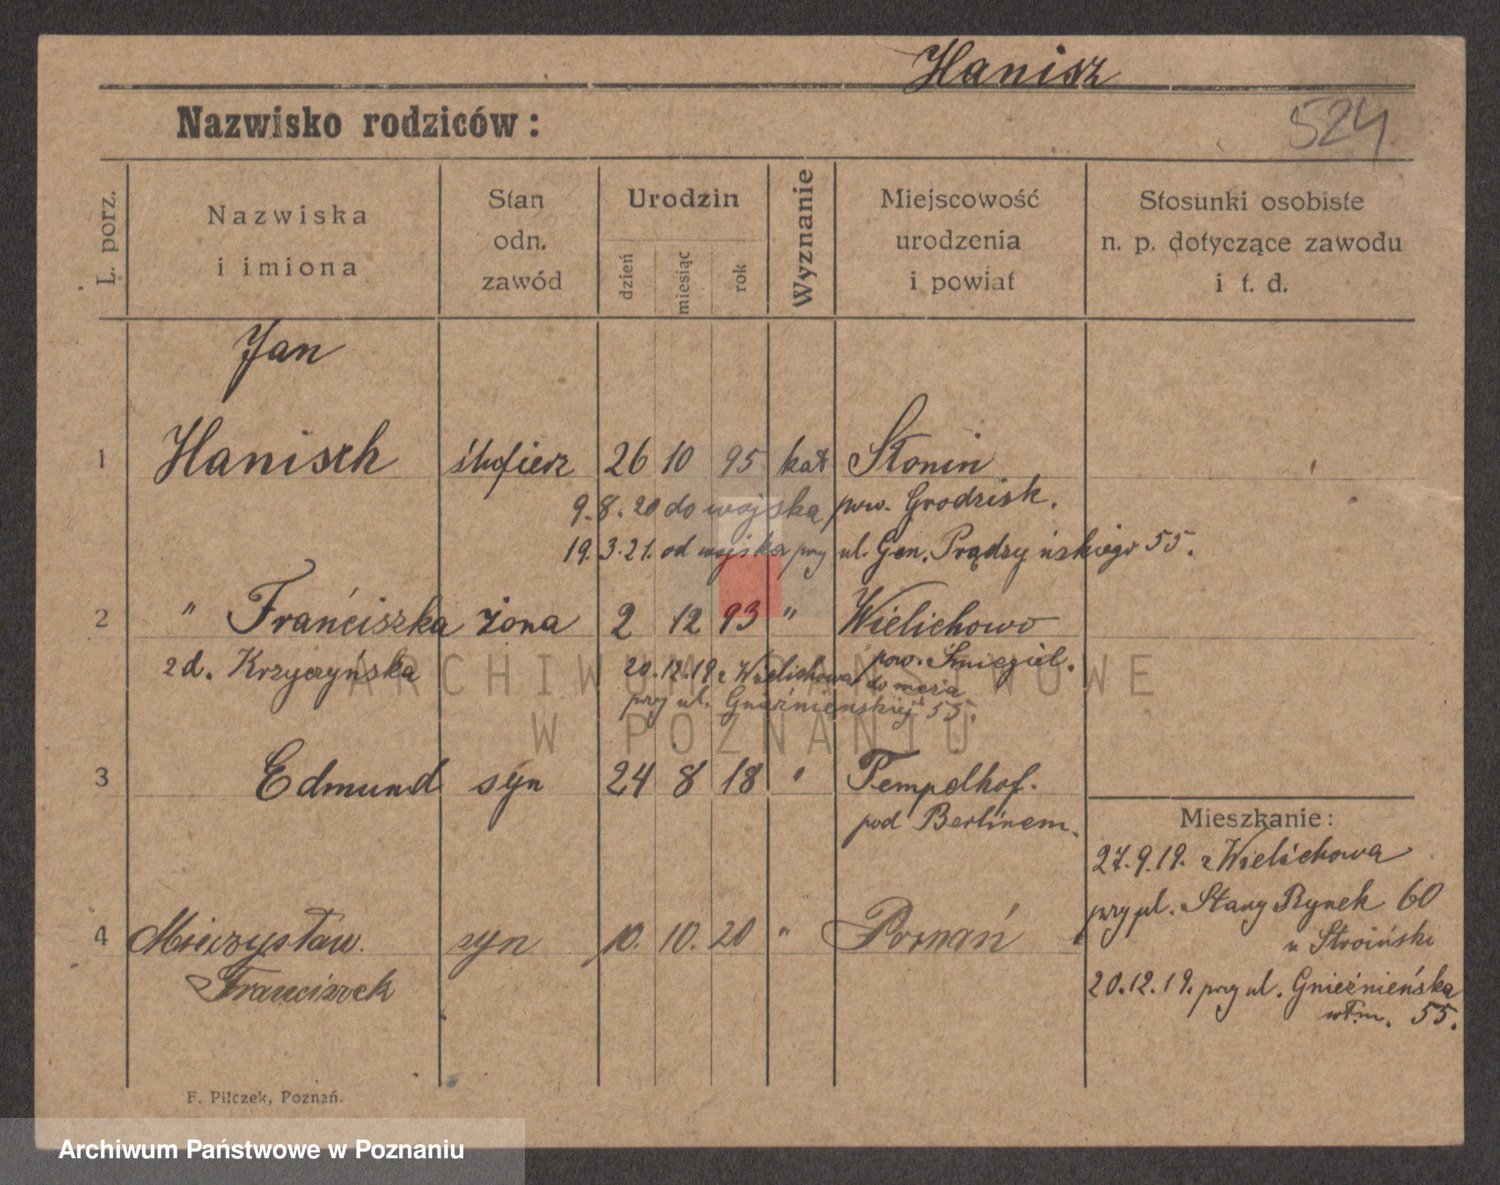 Hanisz
Nazwisko rodziców:
524.
L. porz.
Nazwiska
i imiona
Stan
odn.
zawód
Urodzin
dzień
miesiąc
rok
Wyznanie
Miejscowość
urodzenia
i powiat
Stosunki osobiste
n. p. dotyczące zawodu
i t. d.
Jan
1 Hanisch 26 10 95 kat Słonin
9.8.20 do wojska pow. Grodzisk.
19.3.21. od wojska przy ul. Gen. Prądzyńskiego 55.
2 " Franciszka żona 2 12 93 " Wielichowo
zd. Krzyczyńska pow. Śmigiel.
20.12.19 z Wielichowa do męża
przy ul. Gnieźnieńskiej 55.
3 Edmund syn 24 8 18 " Tempelhof.
pod Berlinem.
Mieszkanie:
27.9.19. z Wielichowa
przy pl. Stary Rynek 60
u Stroiński
20.12.19. przy ul. Gnieźnieńska
włm. 55.
4 Mieczysław syn 10. 10. 20 " Poznań
Franciszek
F. Pilczek, Poznań.
ARCHIWUM PAŃSTWOWE
W POZNANIU
Archiwum Państwowe w Poznaniu